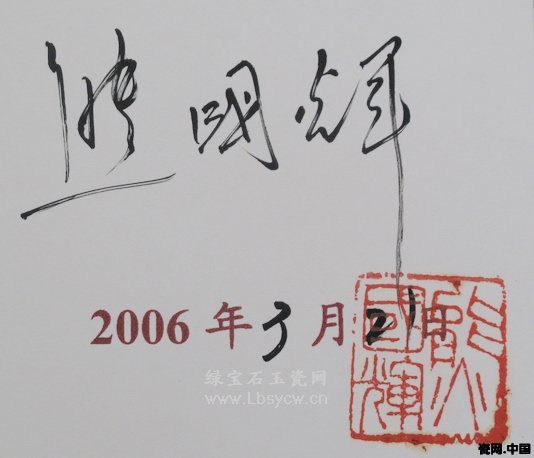 熊國輝
2006 年 3 月 21 日
熊國輝
绿宝石玉瓷网
www.Lbsycw.cn
瓷网.中国